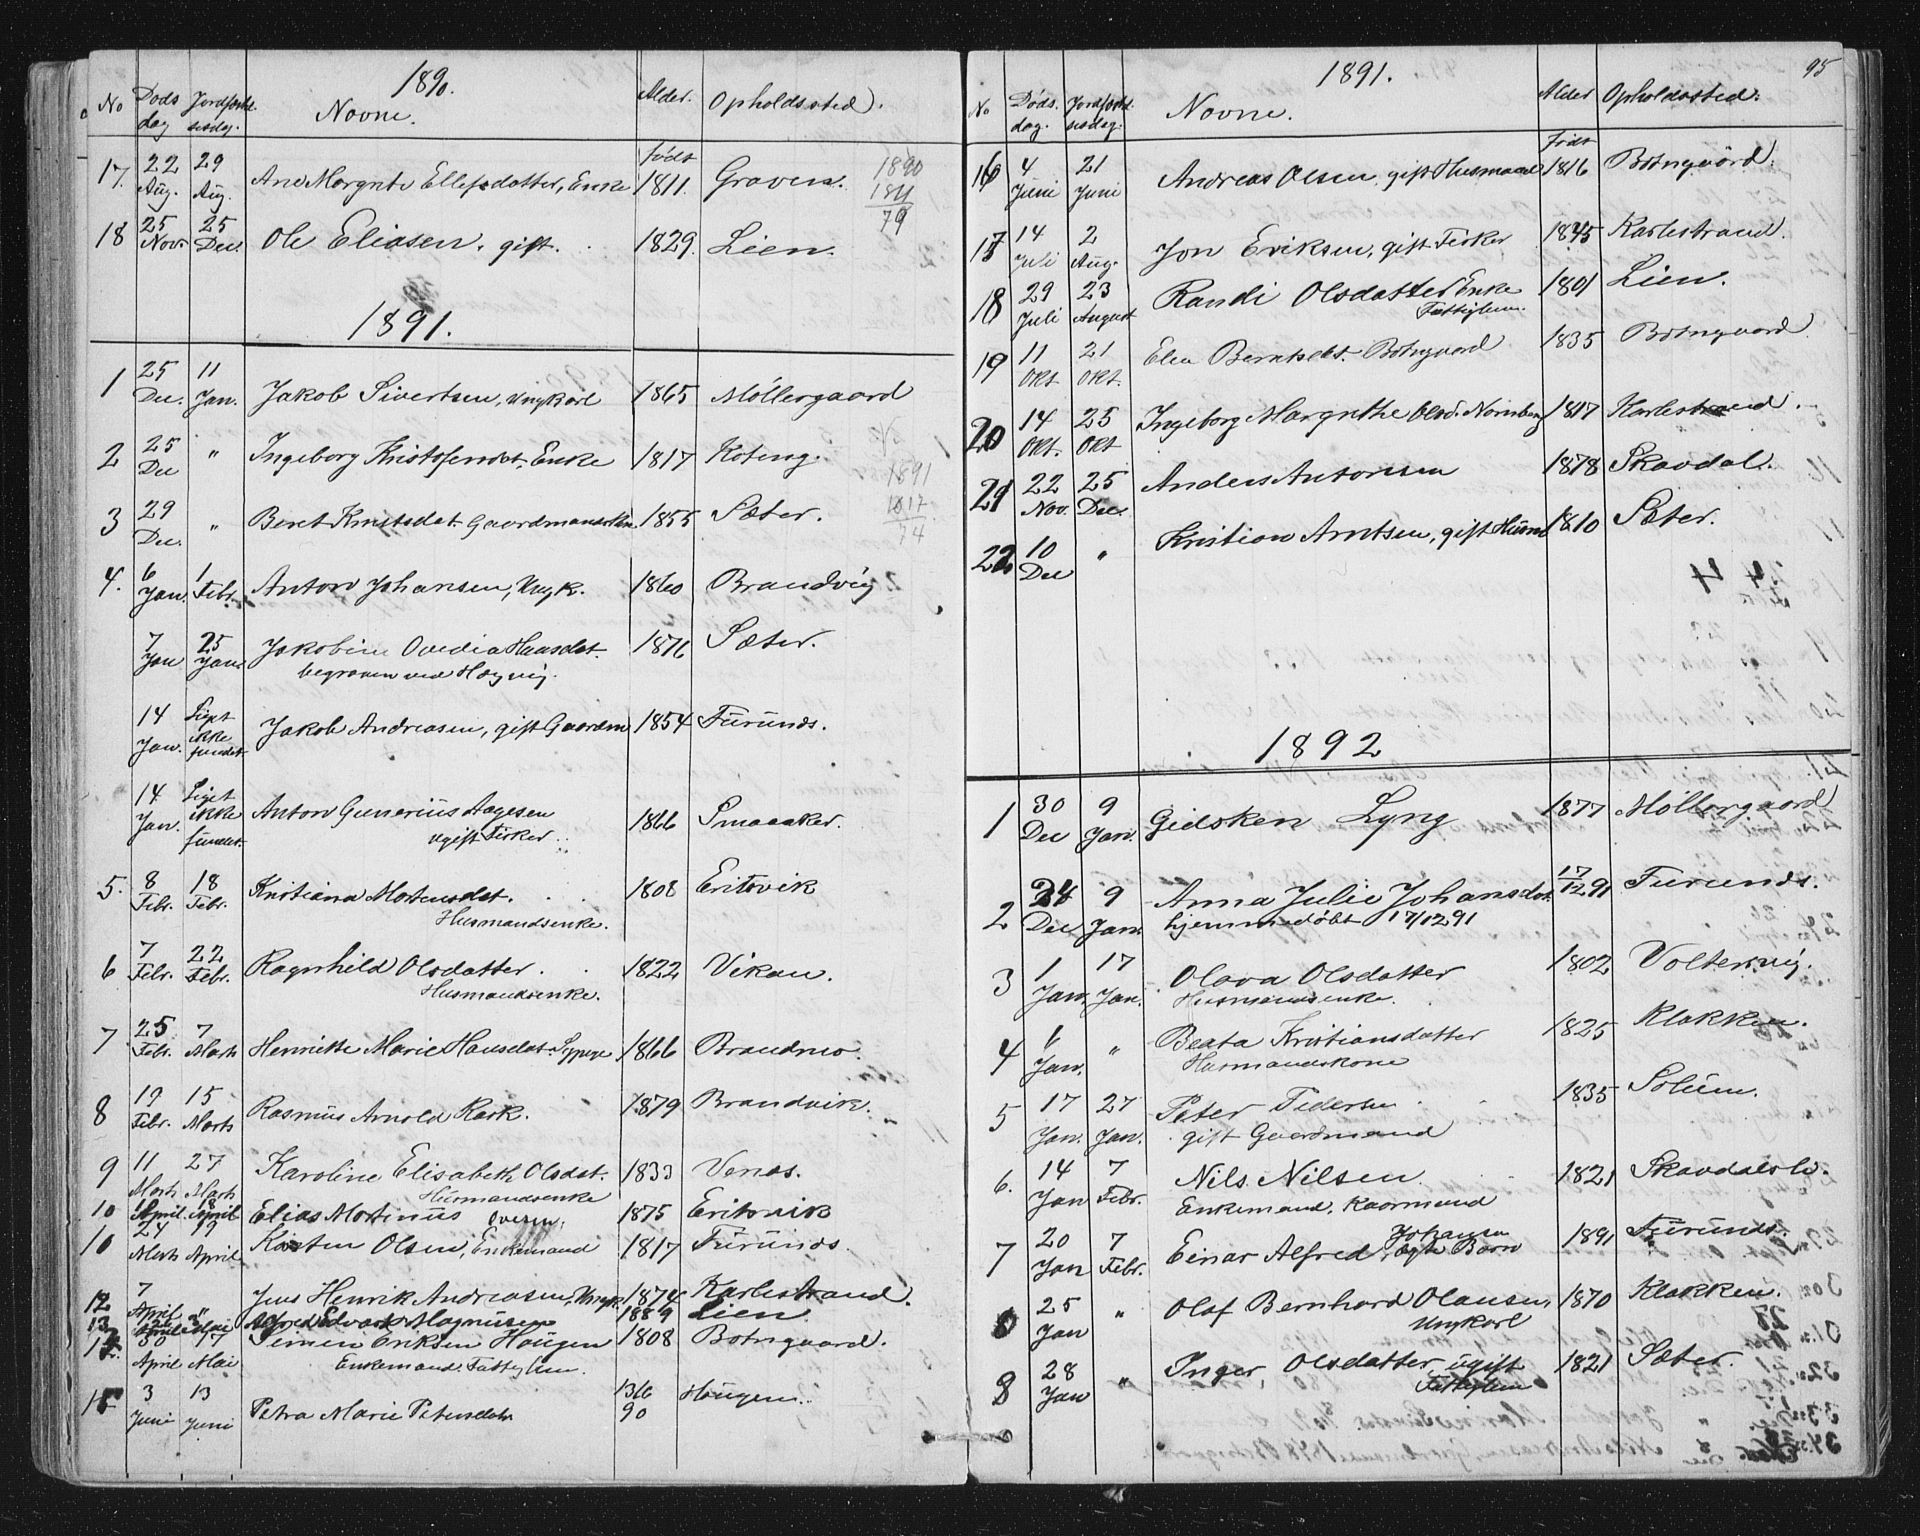 1890.
No Døds dag Jordfæstelsesdag. Navne. Alder. Opholdssted.
født
17. 22 Aug. 29 Aug. Ane Margrete Ellefsdatter, Enke 1811. Graven.
1890
1811
79
18 25 Novr. 25 Dec. Ole Eliasen, gift. 1829. Lien.
1891.
1 25 Dec. 11 Jan. Jakob Sivertsen, Ungkarl 1865 Møllergaard
2 25 Dec " Ingeborg Kristofersdat, Enke 1817 Koteng.
1891
1817
74
3 29 Dec. " Beret Knutsdat Gaardmands 1855 Sæter.
4. 6 Jan. 1 Febr. Anton Johansen, Ungk. 1860 Brandvig
7 Jan 25 Jan. Jakobine Ovedia Hansdat. 1876 Sæter.
begraven ved Hæyvig.
14 Jan. Liget ikke fundet Jakob Andreasen, gift Gaardm 1854 Furunds.
14 Jan. Liget ikke fundet Anton Gunerius Aagesen 1866 Smaaaker.
ugift Fisker.
5. 8 Febr. 18 Febr. Kristiana Mortensdat. 1808 Eritsvik
Husmandsenke.
6 7 Febr. 22 Febr. Ragnhild Olsdatter. 1822 Vikan.
Husmandsenke.
7 25 Febr. 7 Marts Henriette Marie Hansdat. 1866 Brandmo.
8 19 Febr. 15 Marts Rasmus Arnold Rask. 1879 Brandvik.
9 11 Marts 27 Marts Karoline Elisabeth Olsdat. 1833 Venas.
Husmandsenke
10 1 April 8 April Elias Martinus Ovesen, 1875 Eritsvik
10 24 Marts 19 April Karsten Olsen, Enkemand 1817 Furunds.
12 7 April " Jens Henrik Andreasen, Ungk. 1874 Karlestrand.
13 April Mai Alfred Edvart Magnussen 1889 Lien
14. 30 April 17 Mai Simen Eriksen Haugen 1808 Botngaard.
Enkemand, Fattiglem.
15 3 Juni 13 Juni Petra Marie Petersdat. 13/6 90 Haugen.
95
1891.
No Døds. dag. Jordfæstelsesdag. Navne. Alder Opholdssted.
født
16 4 Juni 21 Juni Andreas Olsen, gift Husmand 1816 Botngaard.
17 14 Juli 2 Aug. Jon Eriksen, gift Fisker 1845 Karlestrand.
18 29 Juli 23 August Randi Olsdatter Enke 1801 Lien.
Fattiglem.
19 11 Okt. 21 Okt. Elen Berntsdt. Botngaard 1835 Botngaard
20 14 Okt. 25 Okt Ingeborg Margrethe Olsd. 1817 Karlestrand.
21 22 Nov. 25 Dec. Anders Antonsen 1878 Skavdal.
22 10 Dec " Kristian Arntsen, gift Husm 1810 Sæter.
1892
1 30 Dec 9 Jan. Gidsken Lyng 1877 Møllergaard
2 24 Dec 9 Jan. Anna Julie Johansdat. 17/12 91 Furunds.
hjemmedøbt 17/12 91
3 1 Jan. 17 Jan. Olava Olsdatter 1802 Voltersvig.
Husmandsenke.
4 6 Jan. " Beata Kristiansdatter 1825 Klakken.
Husmandskone
5 17 Jan. 27 Jan. Peter Federsen 1835 Solum.
gift Gaardmand
6. 14 Jan 7 Febr. Nils Nilsen. 1821 Skavdalsli.
Enkemand, Kaarmand
7 20 Jan 7 Febr. Einar Alfred Johansen 1891 Furunds.
ægte Barn
25 Jan " Olaf Bernhard Olausen, 1870 Klakken.
Ungkarl
8 28 Jan " Inger Olsdatter, ugift 1821 Sæter.
Fattiglem